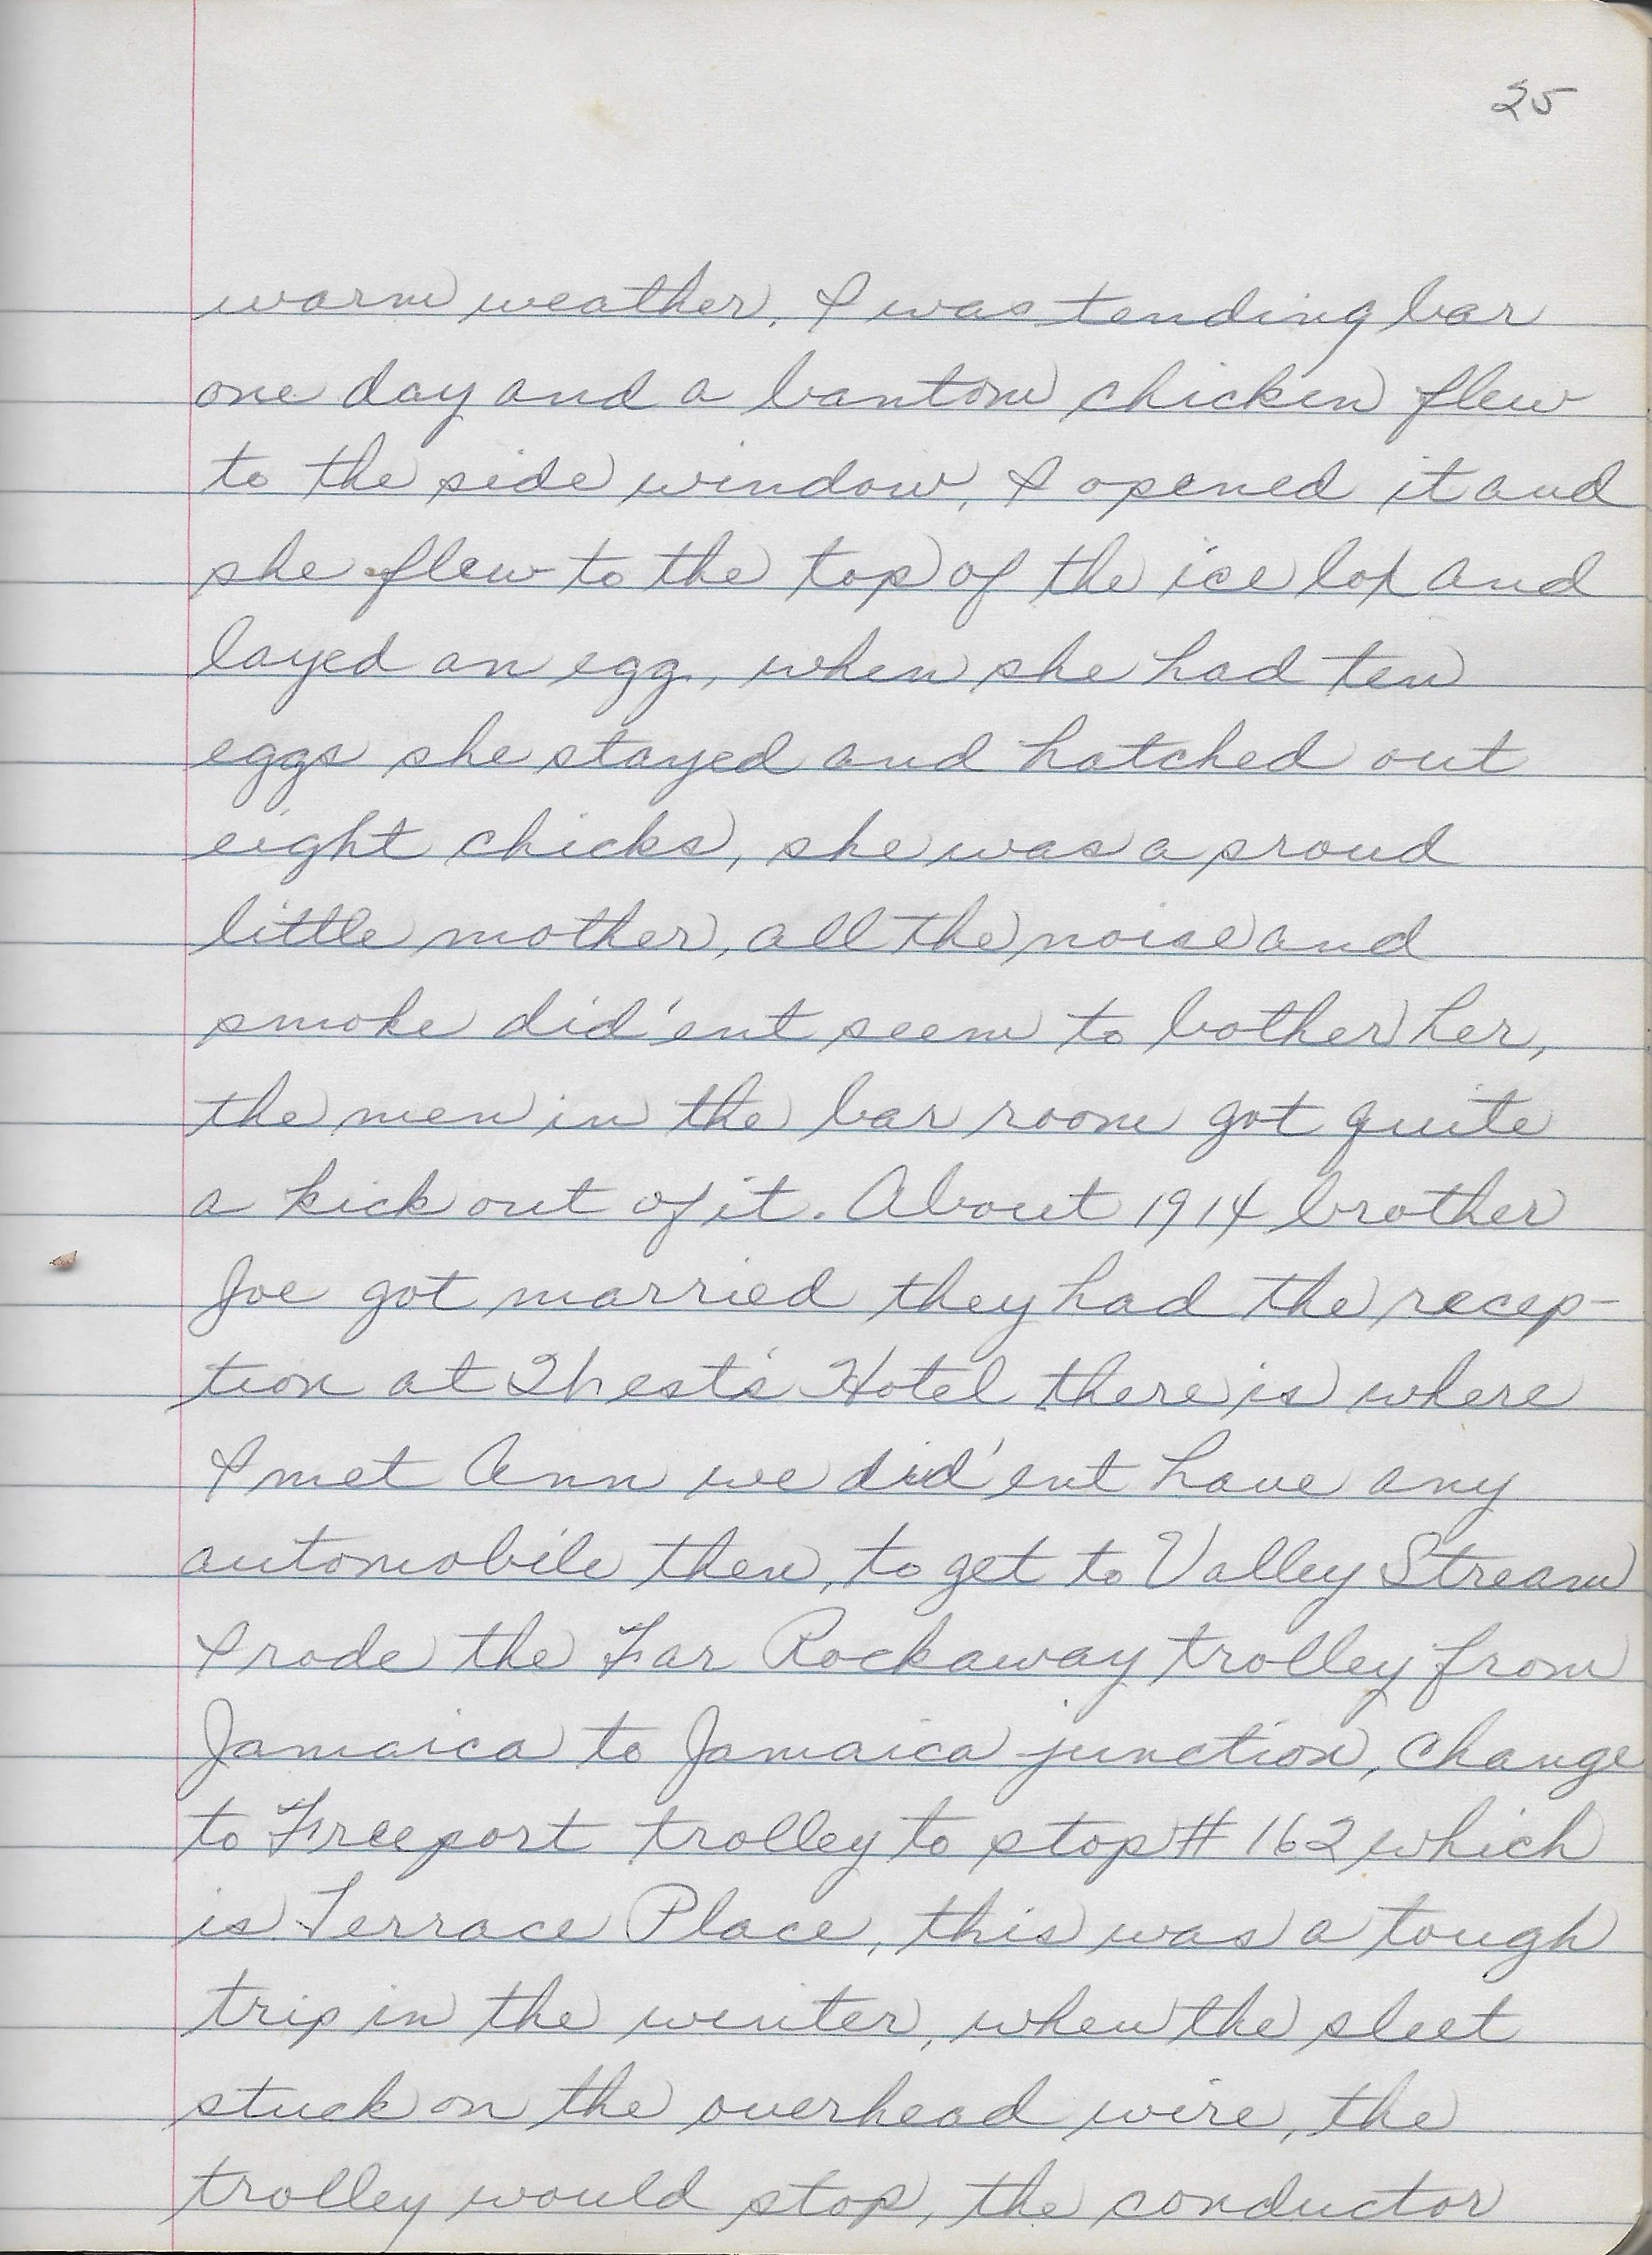 25
warm weather. I was tending bar
one day and a bantom chicken flew
to the side window, I opened it and
she flew to the top of the ice box and
layed an egg, when she had ten
eggs she stayed and hatched out
eight chicks, she was a proud
little mother, all the noise and
smoke did'ent seem to bother her,
the men in the bar room got quite
a kick out of it. About 1914 brother
Joe got married they had the recep-
tion at Hotel there is where
I met Ann we did'ent have any
automobile then, to get to Valley Stream
I rode the Far Rockaway trolley from
Jamaica to Jamaica junction, change
to Freeport trolley to stop # 162 which
is Terrace Place, this was a tough
trip in the winter, when the sleet
stuck on the overhead wire, the
trolley would stop, the conductor